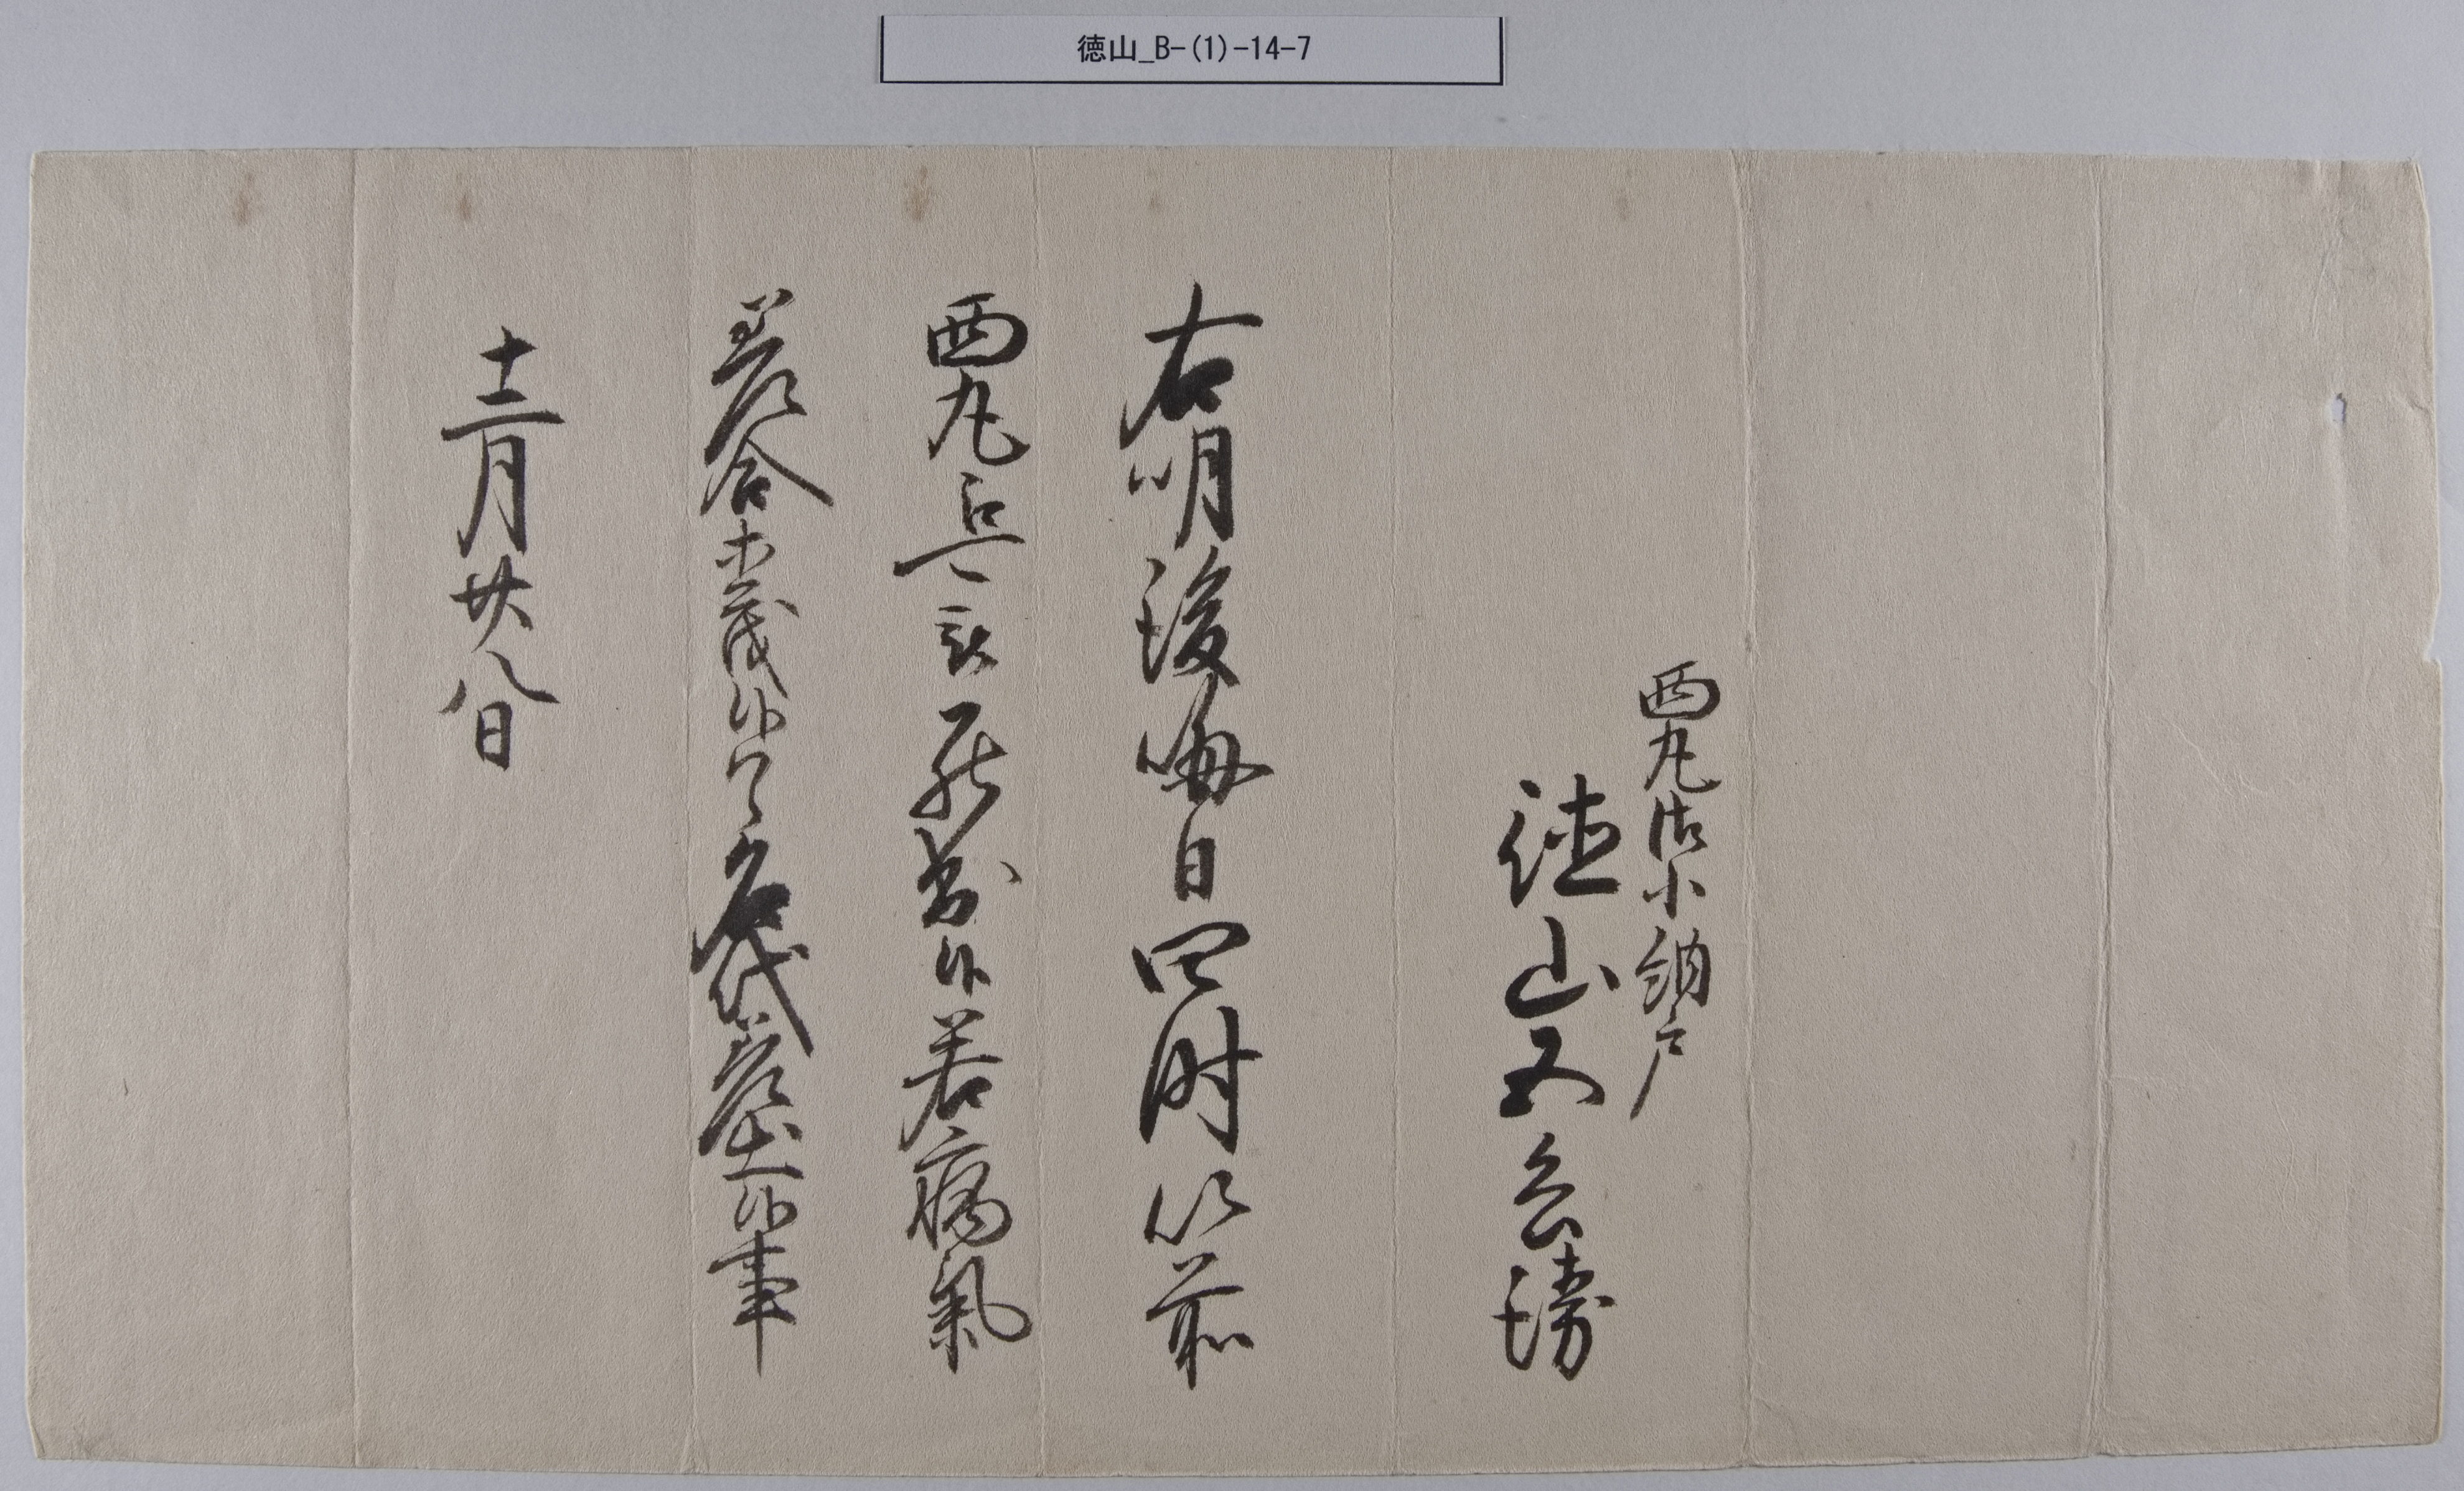 徳山_B-(1)-14-7
西丸御小納戸
徳山五兵衛
右明後晦日四時以前
西丸江可罷出候若病氣
差合等有之候ハヽ名代差出候事
十二月廿八日